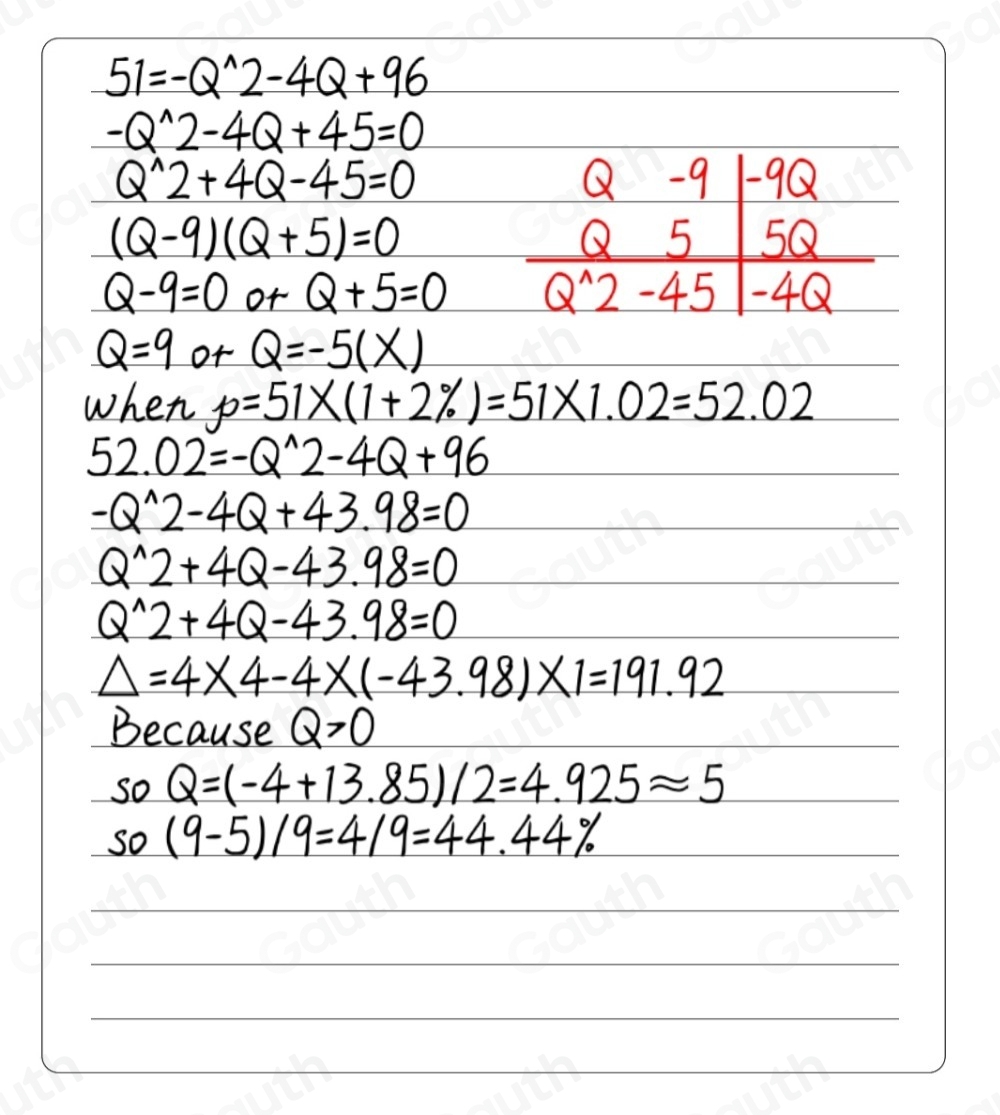 51=-Q^2-4Q+96
-Q^2-4Q+45=0
Q^2+4Q-45=0
Q -9 |-9Q
(Q-9)(Q+5)=0
Q 5 | 5Q
Q-9=0 or Q+5=0
Q^2 -45 |-4Q
Q=9 or Q=-5(X)
when p=51X(1+2%)=51X1.02=52.02
52.02=-Q^2-4Q+96
-Q^2-4Q+43.98=0
Q^2+4Q-43.98=0
Q^2+4Q-43.98=0
△=4X4-4X(-43.98)X1=191.92
Because Q>0
so Q=(-4+13.85)/2=4.925≈5
so (9-5)/9=4/9=44.44%